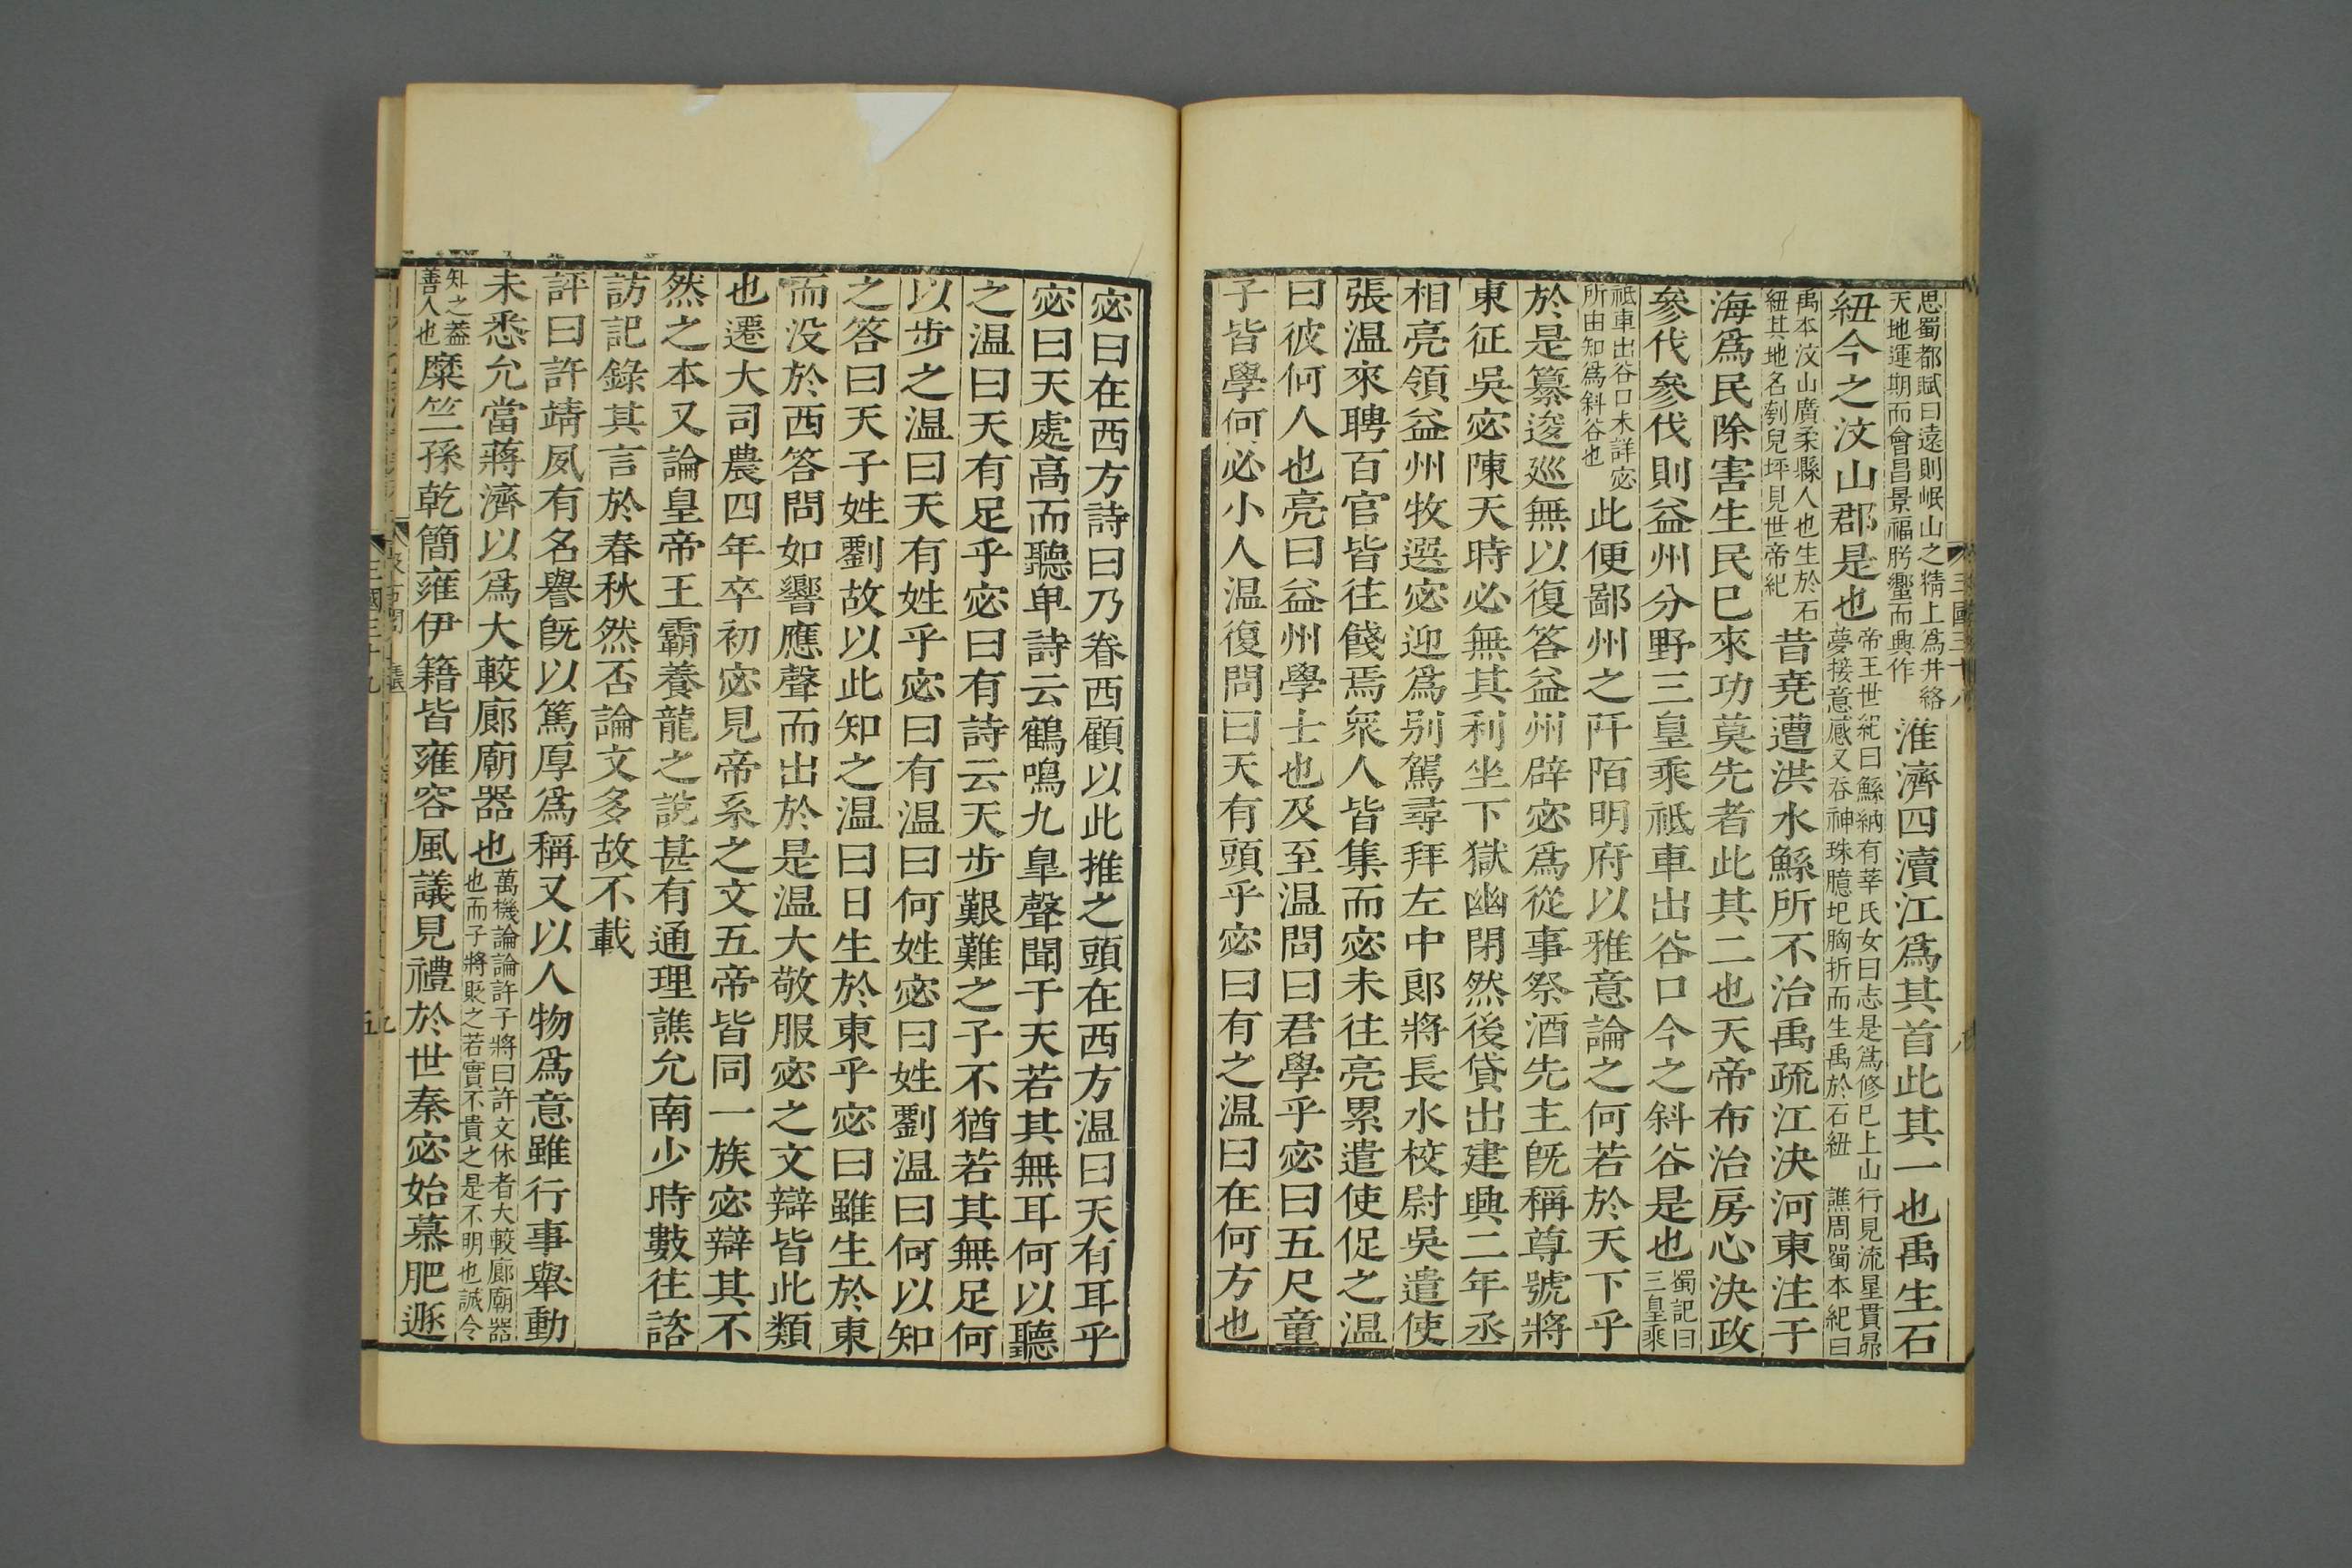 思蜀都賦曰遠則岷山之精上爲井絡
天地運期而會昌景福肹蠁而興作
淮濟四瀆江爲其首此其一也禹生石
紐今之汶山郡是也
帝王世紀曰鯀納有莘氏女曰志是爲修已上山行見流星貫昴
夢接意感又吞神珠臆圯胸折而生禹於石紐 譙周蜀本紀曰
禹本汶山廣柔縣人也生於石
紐其地名刳兒坪見世帝紀
昔堯遭洪水鯀所不治禹疏江決河東注于
海爲民除害生民已來功莫先者此其二也天帝布治房心決政
參伐參伐則益州分野三皇乘祗車出谷口今之斜谷是也
蜀記曰
三皇乘
祗車出谷口未詳宓
所由知爲斜谷也
此便鄙州之阡陌明府以雅意論之何若於天下乎
於是纂逡廵無以復答益州辟宓爲從事祭酒先主旣稱尊號將
東征吳宓陳天時必無其利坐下獄幽閉然後貸出建興二年丞
相亮領益州牧選宓迎爲别駕尋拜左中郎將長水校尉吳遣使
張温來聘百官皆往餞焉衆人皆集而宓未往亮累遣使促之温
曰彼何人也亮曰益州學士也及至温問曰君學乎宓曰五尺童
子皆學何必小人温復問曰天有頭乎宓曰有之温曰在何方也
宓曰在西方詩曰乃眷西顧以此推之頭在西方温曰天有耳乎
宓曰天處高而聽卑詩云鶴鳴九臯聲聞于天若其無耳何以聽
之温曰天有足乎宓曰有詩云天步艱難之子不猶若其無足何
以步之温曰天有姓乎宓曰有温曰何姓宓曰姓劉温曰何以知
之答曰天子姓劉故以此知之温曰日生於東乎宓曰雖生於東
而没於西答問如響應聲而出於是温大敬服宓之文辯皆此類
也遷大司農四年卒初宓見帝系之文五帝皆同一族宓辯其不
然之本又論皇帝王霸養龍之說甚有通理譙允南少時數往諮
訪記錄其言於春秋然否論文多故不載
評曰許靖夙有名譽旣以篤厚爲稱又以人物爲意雖行事舉動
未悉允當蔣濟以爲大較廊廟器也
萬機論論許子將曰許文休者大較廊廟器
也而子將貶之若實不貴之是不明也誠令
知之蓋
善人也
糜竺孫乾簡雍伊籍皆雍容風議見禮於世秦宓始慕肥遯